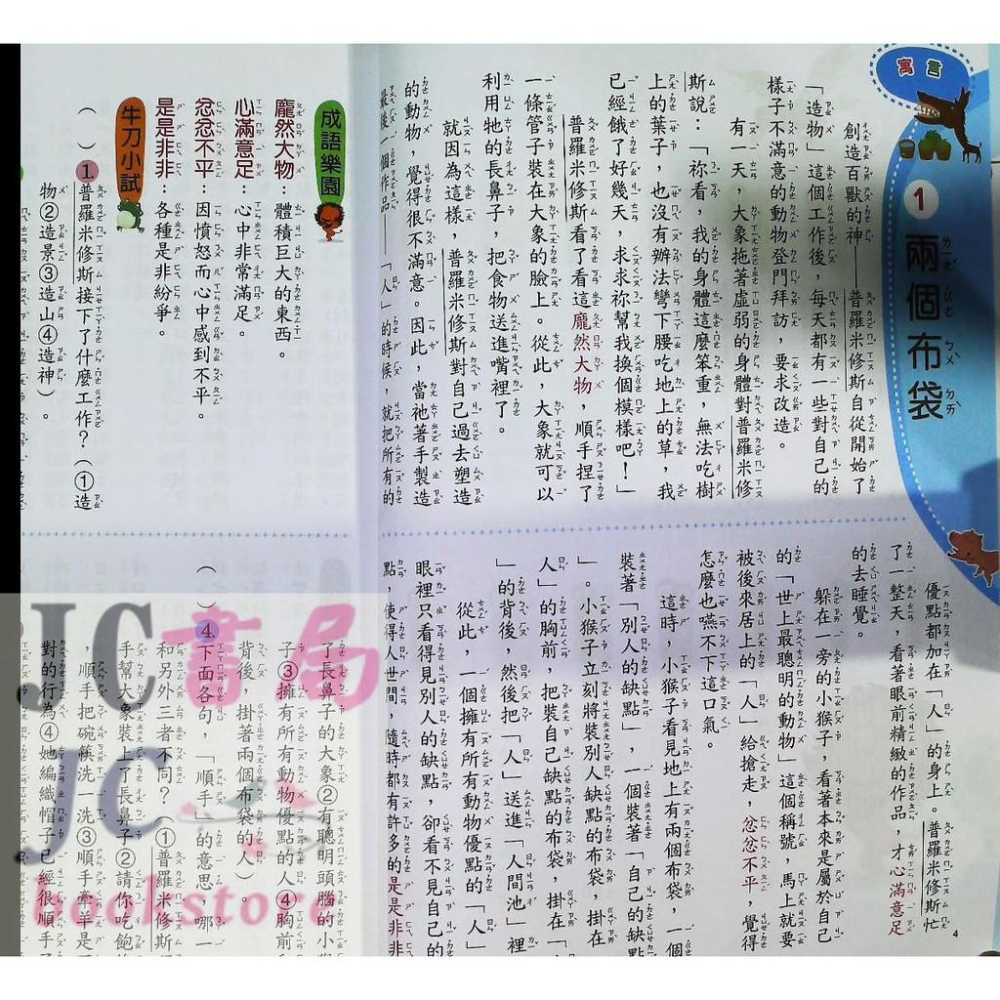 寓言
1 兩個布袋
創造百獸的神——普羅米修斯自從開始了
「造物」這個工作後，每天都有一些對自己的
樣子不滿意的動物登門拜訪，要求改造。
有一天，大象拖著虛弱的身體對普羅米修
斯說：「祢看，我的身體這麼笨重，無法吃樹
上的葉子，也沒有辦法彎下腰吃地上的草，我
已經餓了好幾天，求求祢幫我換個模樣吧！」
普羅米修斯看了看這龐然大物，順手捏了
一條管子裝在大象的臉上。從此，大象就可以
利用牠的長鼻子，把食物送進嘴裡了。
就因為這樣，普羅米修斯對自己過去塑造
的動物，覺得很不滿意。因此，當祂著手製造
最後一個作品——「人」的時候，就把所有的
優點都加在「人」的身上。普羅米修斯忙
了一整天，看著眼前精緻的作品，才心滿意足
的去睡覺。
躲在一旁的小猴子，看著本來是屬於自己
的「世上最聰明的動物」這個稱號，馬上就要
被後來居上的「人」給搶走，忿忿不平，覺得
怎麼也嚥不下這口氣。
這時，小猴子看見地上有兩個布袋，一個
裝著「別人的缺點」，一個裝著「自己的缺點
」。小猴子立刻將裝別人缺點的布袋，掛在「
人」的胸前，把裝自己缺點的布袋，掛在「人
」的背後，然後把「人」送進「人間池」裡
從此，一個擁有所有動物優點的「人」
眼裡只看得見別人的缺點，卻看不見自己的
點，使得人世間，隨時都有許多的是是非非
4
成語樂園
龐然大物：體積巨大的東西。
心滿意足：心中非常滿足。
忿忿不平：因憤怒而心中感到不平。
是是非非：各種是非紛爭。
牛刀小試
（　）1 普羅米修斯接下了什麼工作？（①造
物②造景③造山④造神）。
了長鼻子的大象②有聰明頭腦的小
子③擁有所有動物優點的人④胸前
背後，掛著兩個布袋的人）。
（　）4 下面各句，「順手」的意思，哪一
和另外三者不同？（①普羅米修斯
手幫大象裝上了長鼻子②請你吃飽
，順手把碗筷洗一洗③順手牽羊是
對的行為④她編織帽子已經很順手
JC書局
JC
bookstore